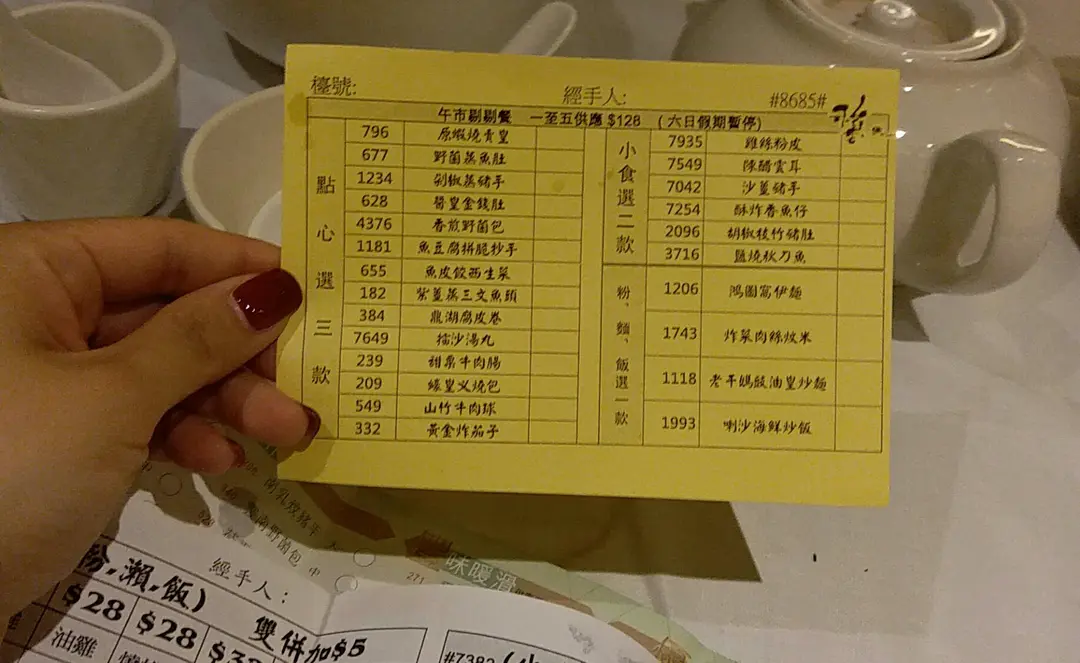 檯號:
經手人:
#8685#
午市剔剔餐 一至五供應 $128 (六日假期暫停)
點心選三款
796 原蝦燒賣皇
677 野菌蒸魚肚
1234 剁椒蒸豬手
628 醬皇金錢肚
4376 香煎野菌包
1181 魚豆腐拼脆抄手
655 魚皮餃西生菜
182 紫薑蒸三文魚頭
384 鼎湖腐皮卷
7649 擂沙湯丸
239 甜菜牛肉腸
209 緣皇叉燒包
549 山竹牛肉球
332 黃金炸茄子
小食選二款
7935 雞絲粉皮
7549 陳醋雲耳
7042 沙薑豬手
7254 酥炸香魚仔
2096 胡椒枝竹豬肚
3716 鹽燒秋刀魚
粉、麵、飯選一款
1206 鴻圖窩伊麵
1743 炸菜肉絲炆米
1118 老干媽豉油皇炒麵
1993 喇沙海鮮炒飯
南乳炆豬手
野菌包 中
味暖滑
271
經手人:
粉,瀨,飯)
$28
$28
雙併加$5
油雞
#7382